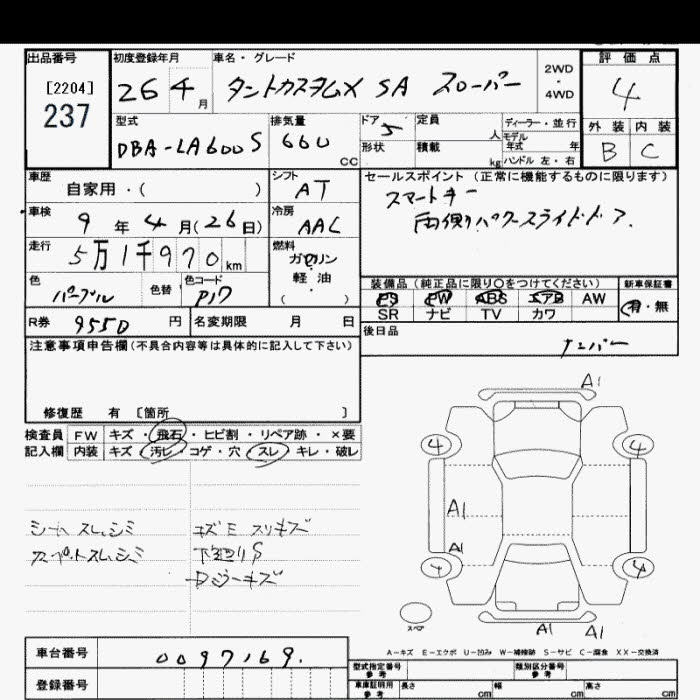 出品番号
[2204]
237
初度登録年月
26 4 月
車名・グレード
タントカスタムX SA スローパー
2WD
・
4WD
評価点
4
外装 内装
B C
型式
DBA-LA600S
排気量
660 CC
ドア 5
形状
定員 人
積載 kg
ディーラー・並行
モデル
年式 年
ハンドル 左・右
車歴
自家用・( )
シフト
AT
セールスポイント (正常に機能するものに限ります)
スマートキー
両側パワースライドドア.
車検
9 年 4 月(26日)
冷房
AAC
走行
5万1千970 km
燃料
ガソリン
・
軽油
( )
色
パープル
色替
色コード
P17
装備品 (純正品に限り○をつけてください)
PS PW ABS エアB AW
SR ナビ TV カワ
新車保証書
有・無
R券 9550 円
名変期限 月 日
後日品
ナンバー
注意事項申告欄(不具合内容等は具体的に記入して下さい)
修復歴 有 〔箇所 〕
検査員
記入欄
FW キズ・飛石・ヒビ割・リペア跡・×要
内装 キズ・汚レ・コゲ・穴・スレ・キレ・破レ
シート スレ.シミ
キズ E スリキズ
下廻りS
A1
4 4
A1
A1
4 4
スペア
A1 A1
A-キズ E-エクボ U-凹み W-補修跡 S-サビ C-腐食 XX-交換済
車台番号 0097169.
登録番号
型式指定番号
参考
類別区分番号
参考
車庫証明用
参考
長さ cm
幅 cm
高さ cm